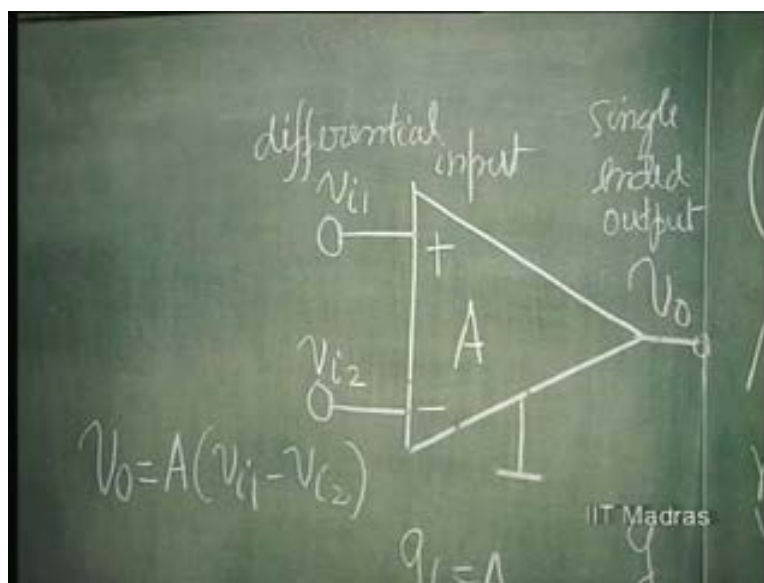 differential input
single
ended
output
Vi1
+
V0
A
Vi2
−
V0 = A(Vi1 − Vi2)
IIT Madras